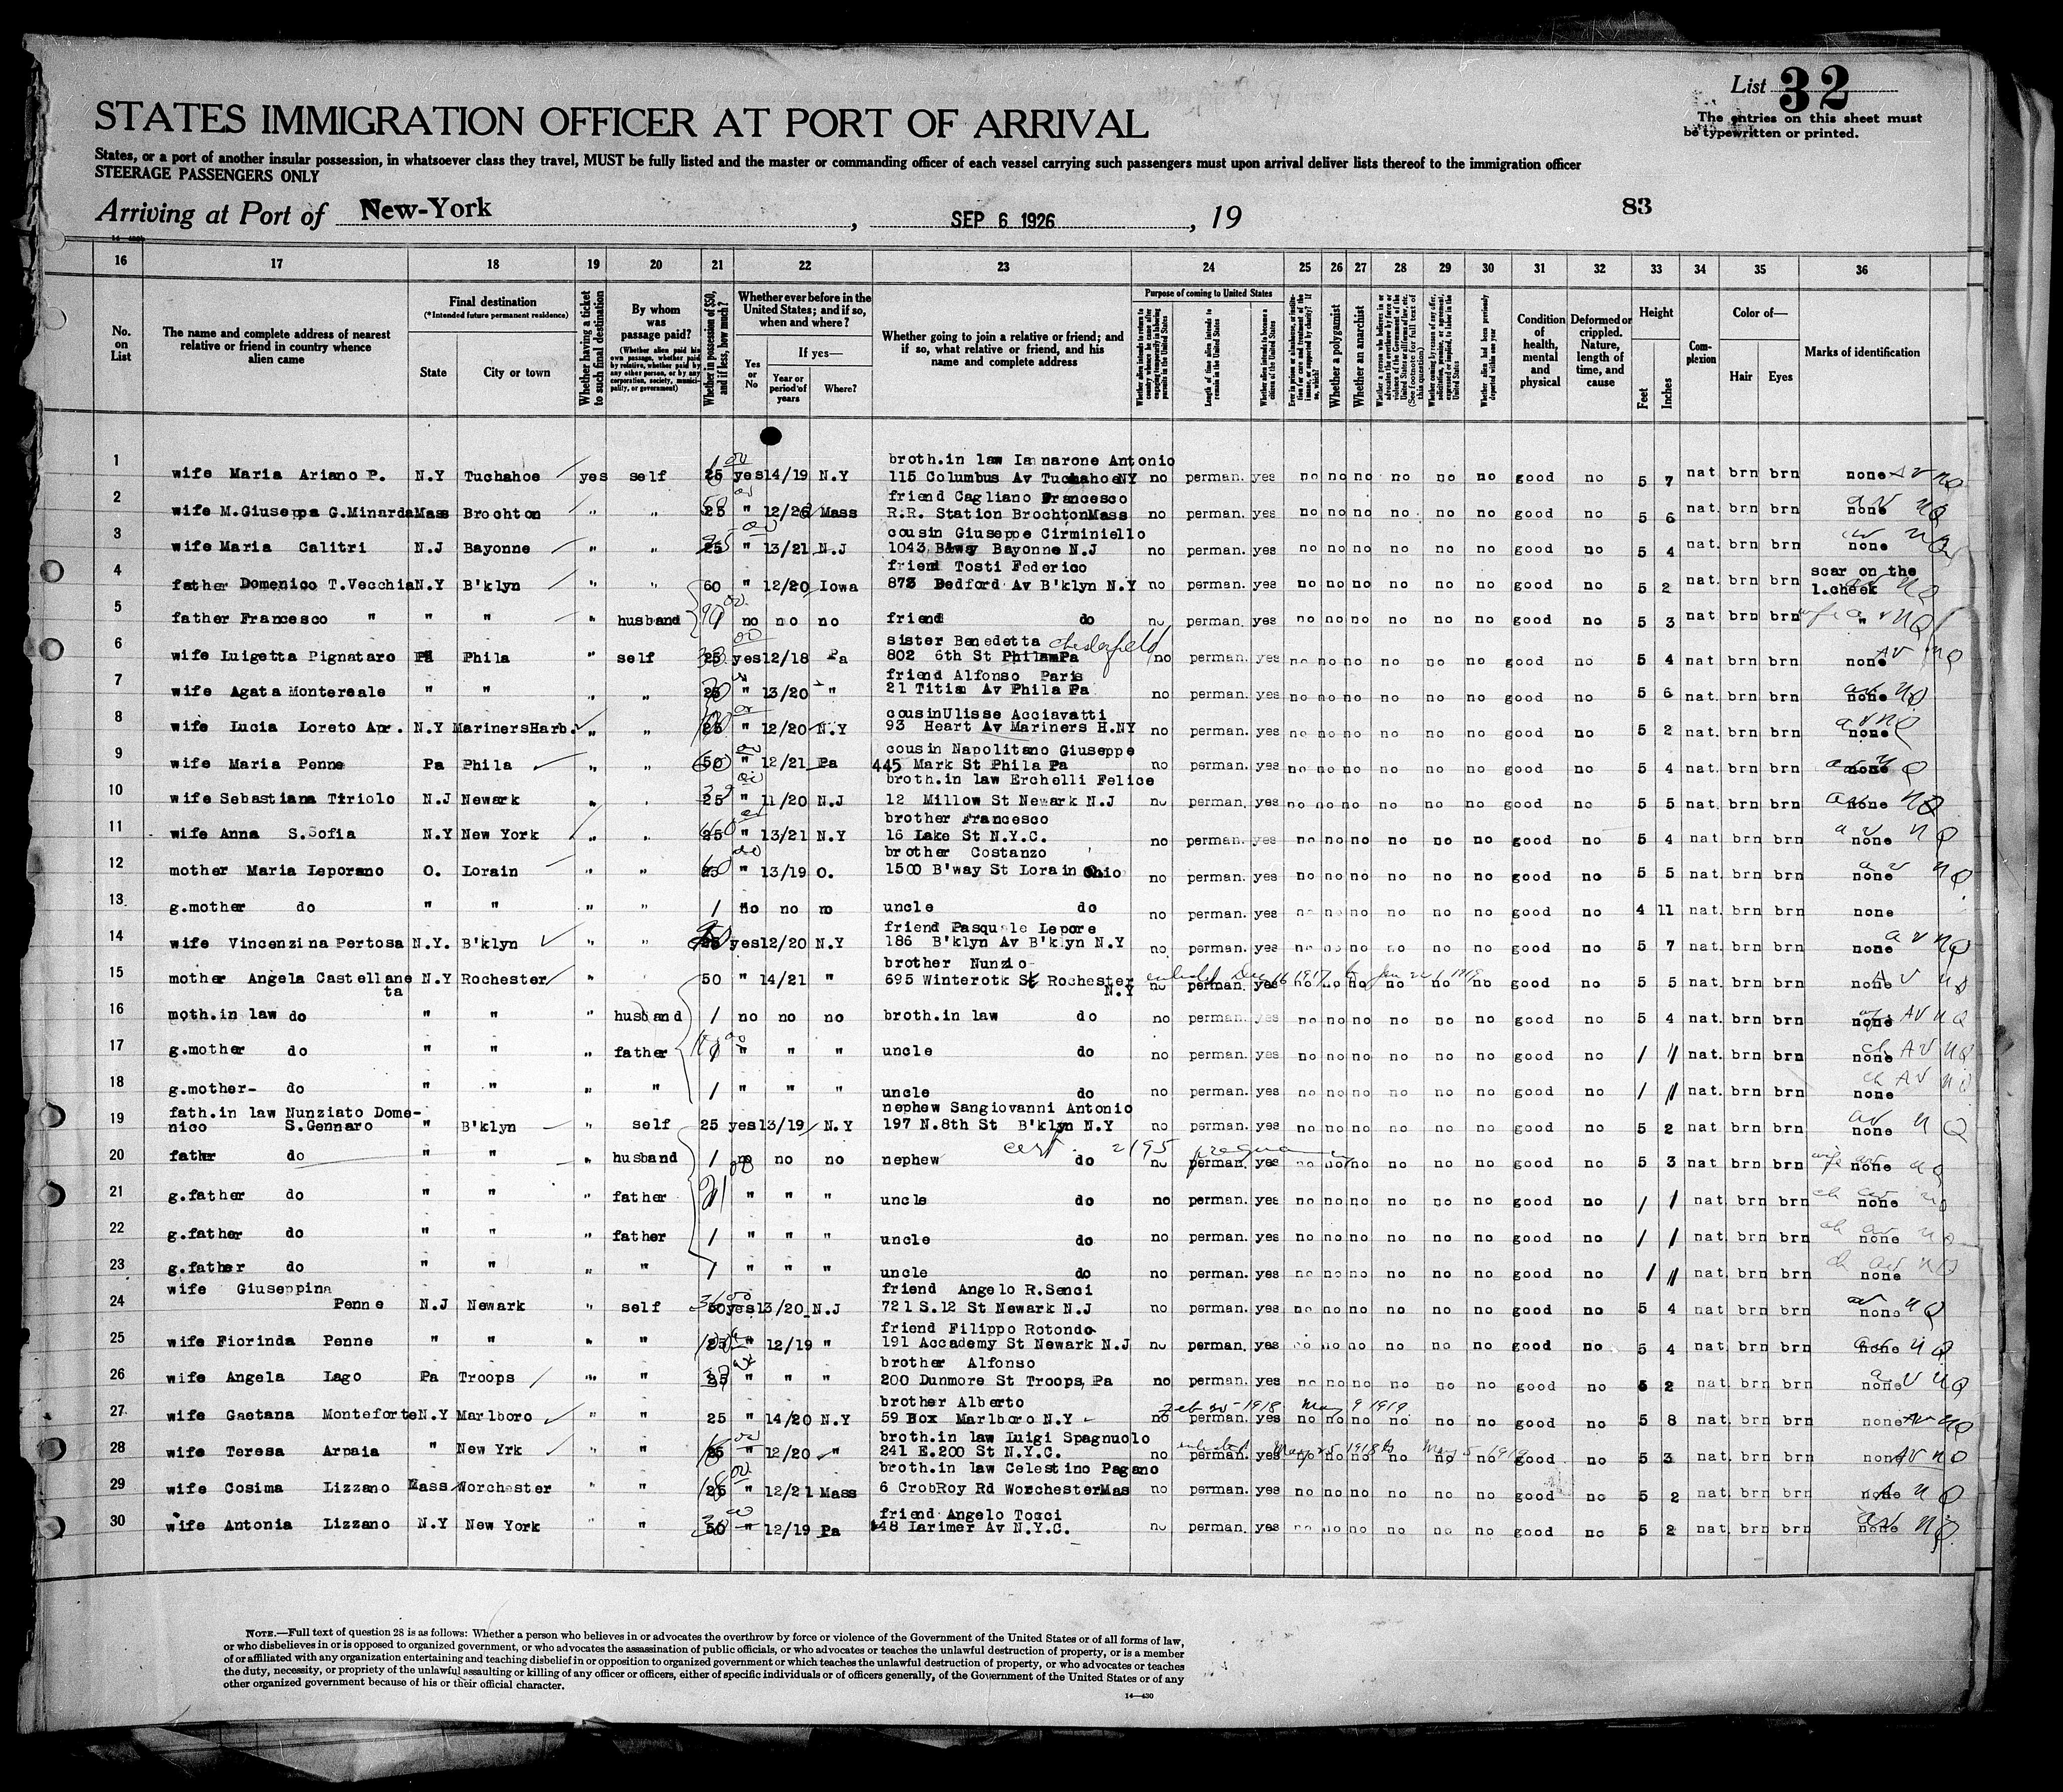 List 32
The entries on this sheet must
be typewritten or printed.
STATES IMMIGRATION OFFICER AT PORT OF ARRIVAL
States, or a port of another insular possession, in whatsoever class they travel, MUST be fully listed and the master or commanding officer of each vessel carrying such passengers must upon arrival deliver lists thereof to the immigration officer
STEERAGE PASSENGERS ONLY
Arriving at Port of New-York, SEP 6 1926, 19
83
16 17 18 19 20 21 22 23 24 25 26 27 28 29 30 31 32 33 34 35 36
No. on List
The name and complete address of nearest relative or friend in country whence alien came
Final destination
(*Intended future permanent residence)
State
City or town
Whether having a ticket to such final destination
By whom was passage paid?
(Whether alien paid his own passage, whether paid by relative, whether paid by any other person, or by any corporation, society, municipality, or government)
Whether in possession of $50, and if less, how much?
Whether ever before in the United States; and if so, when and where?
Yes or No
If yes—
Year or period of years
Where?
Whether going to join a relative or friend; and if so, what relative or friend, and his name and complete address
Purpose of coming to United States
Length of time alien intends to remain in the United States
Whether alien intends to become a citizen of the United States
Whether a polygamist
Whether an anarchist
Whether alien had been previously deported within one year
Condition of health, mental and physical
Deformed or crippled. Nature, length of time, and cause
Height
Feet
Inches
Complexion
Color of—
Hair
Eyes
Marks of identification
1 wife Maria Ariano P. N.Y Tuchahoe yes self 25 yes 14/19 N.Y broth.in law Iannarone Antonio
115 Columbus Av Tuckahoe NY no perman. yes no no no no no no good no 5 7 nat brn brn none
2 wife M.Giuseppa G.Minarda Mass Brochton " " 25 " 12/26 Mass friend Cagliano Francesco
R.R. Station Brochton Mass no perman. yes no no no no no no good no 5 6 nat. brn brn none
3 wife Maria Calitri N.J Bayonne " " 25 " 13/21 N.J cousin Giuseppe Cirminiello
1043 Bway Bayonne N.J no perman. yes no no no no no no good no 5 4 nat. brn brn none
4 father Domenico T.Vecchia N.Y B'klyn " " 60 " 12/20 Iowa friend Tosti Federico
873 Bedford Av B'klyn N.Y no perman. yes no no no no no no good no 5 2 nat. brn brn scar on the
l.cheek
5 father Francesco " " " " husband 1 no no no friend do no perman. yes no no no no no no good no 5 3 nat brn brn "
6 wife Luigetta Pignataro Pa Phila " self 25 yes 12/18 Pa sister Benedetta Chesterfield
802 6th St Phila Pa no perman. yes no no no no no no good no 5 4 nat brn brn none
7 wife Agata Montereale " " " " 25 " 13/20 " friend Alfonso Paris
21 Titian Av Phila Pa no perman. yes no no no no no no good no 5 6 nat. brn brn none
8 wife Lucia Loreto Apr. N.Y MarinersHarb. " " 25 " 12/20 N.Y cousin Ulisse Acciavatti
93 Heart Av Mariners H.NY no perman. yes no no no no no no good no 5 2 nat. brn brn none
9 wife Maria Penne Pa Phila " " 50 " 12/21 Pa cousin Napolitano Giuseppe
445 Mark St Phila Pa no perman. yes no no no no no no good no 5 4 nat. brn brn none
10 wife Sebastiana Tiriolo N.J Newark " " 25 " 11/20 N.J broth.in law Erchelli Felice
12 Millow St Newark N.J no perman. yes no no no no no no good no 5 5 nat. brn brn none
11 wife Anna S.Sofia N.Y New York " " 25 " 13/21 N.Y brother Francesco
16 Lake St N.Y.C. no perman. yes no no no no no no good no 5 4 nat. brn brn none
12 mother Maria Leporano O. Lorain " " 25 " 13/19 O. brother Costanzo
1500 B'way St Lorain Ohio no perman. yes no no no no no no good no 5 5 nat. brn brn none
13 g.mother do " " " " 1 no no no uncle do no perman. yes no no no no no no good no 4 11 nat. brn brn none
14 wife Vincenzina Pertosa N.Y. B'klyn " " 25 yes 12/20 N.Y friend Pasquale Lepore
186 B'klyn Av B'klyn N.Y no perman. yes no no no no no no good no 5 7 nat. brn brn none
15 mother Angela Castellane
ta N.Y Rochester " 50 " 14/21 " brother Nunzio
695 Winterotk St Rochester
N.Y no perman. yes no no no no no no good no 5 5 nat. brn brn none
enlisted Dec 16 1917 to Jan 22 1919
16 moth.in law do " " " husband 1 no no no broth.in law do no perman. yes no no no no no no good no 5 4 nat. brn brn none
17 g.mother do " " " father 1 " " " uncle do no perman. yes no no no no no no good no / // nat. brn brn none
18 g.mother- do " " " " 1 " " " uncle do no perman. yes no no no no no no good no / // nat. brn brn none
19 fath.in law Nunziato Dome-
nico S.Gennaro " B'klyn " self 25 yes 13/19 N.Y nephew Sangiovanni Antonio
197 N.8th St B'klyn N.Y no perman. yes no no no no no no good no 5 2 nat. brn brn none
cert. 2195
20 father do " " " husband 1 no no no nephew do no perman. yes no no no no no no good no 5 3 nat brn brn none
21 g.father do " " " father 1 " " " uncle do no perman. yes no no no no no no good no / / nat brn brn none
22 g.father do " " " father 1 " " " uncle do no perman. yes no no no no no no good no / / nat. brn brn none
23 g.father do " " " " 1 " " " uncle do no perman. yes no no no no no no good no / // nat. brn brn none
24 wife Giuseppina
Penne N.J Newark " self 50 yes 13/20 N.J friend Angelo R.Senci
721 S.12 St Newark N.J no perman. yes no no no no no no good no 5 4 nat brn brn none
25 wife Fiorinda Penne " " " " 25 " 12/19 " friend Filippo Rotondo
191 Accademy St Newark N.J no perman. yes no no no no no no good no 5 4 nat brn brn none
26 wife Angela Lago Pa Troops " " 25 " " " brother Alfonso
200 Dunmore St Troops, Pa no perman. yes no no no no no no good no 5 2 nat brn brn none
27 wife Gaetana Monteforte N.Y Marlboro " " 25 " 14/20 N.Y brother Alberto
59 Box Marlboro N.Y no perman. yes no no no no no no good no 5 8 nat. brn brn none
Feb 25-1918 May 9 1919
28 wife Teresa Arpaia " New Yrk " " 25 " 12/20 " broth.in law Luigi Spagnuolo
241 E.200 St N.Y.C. no perman. yes no no no no no no good no 5 3 nat. brn brn none
enlisted May 25 1918 to May 5-1919
29 wife Cosima Lizzano Mass Worchester " " 25 " 12/21 Mass broth.in law Celestino Pagano
6 CrobRoy Rd WorchesterMas no perman. yes no no no no no no good no 5 2 nat. brn brn none
30 wife Antonia Lizzano N.Y New York " " 50 " 12/19 Pa friend Angelo Tocci
48 Larimer Av N.Y.C. no perman. yes no no no no no no good no 5 2 nat. brn brn none
NOTE.—Full text of question 28 is as follows: Whether a person who believes in or advocates the overthrow by force or violence of the Government of the United States or of all forms of law,
or who disbelieves in or is opposed to organized government, or who advocates the assassination of public officials, or who advocates or teaches the unlawful destruction of property, or is a member
of or affiliated with any organization entertaining and teaching disbelief in or opposition to organized government or which teaches the unlawful destruction of property, or who advocates or teaches
the duty, necessity, or propriety of the unlawful assaulting or killing of any officer or officers, either of specific individuals or of officers generally, of the Government of the United States or of any
other organized government because of his or their official character.
14—430